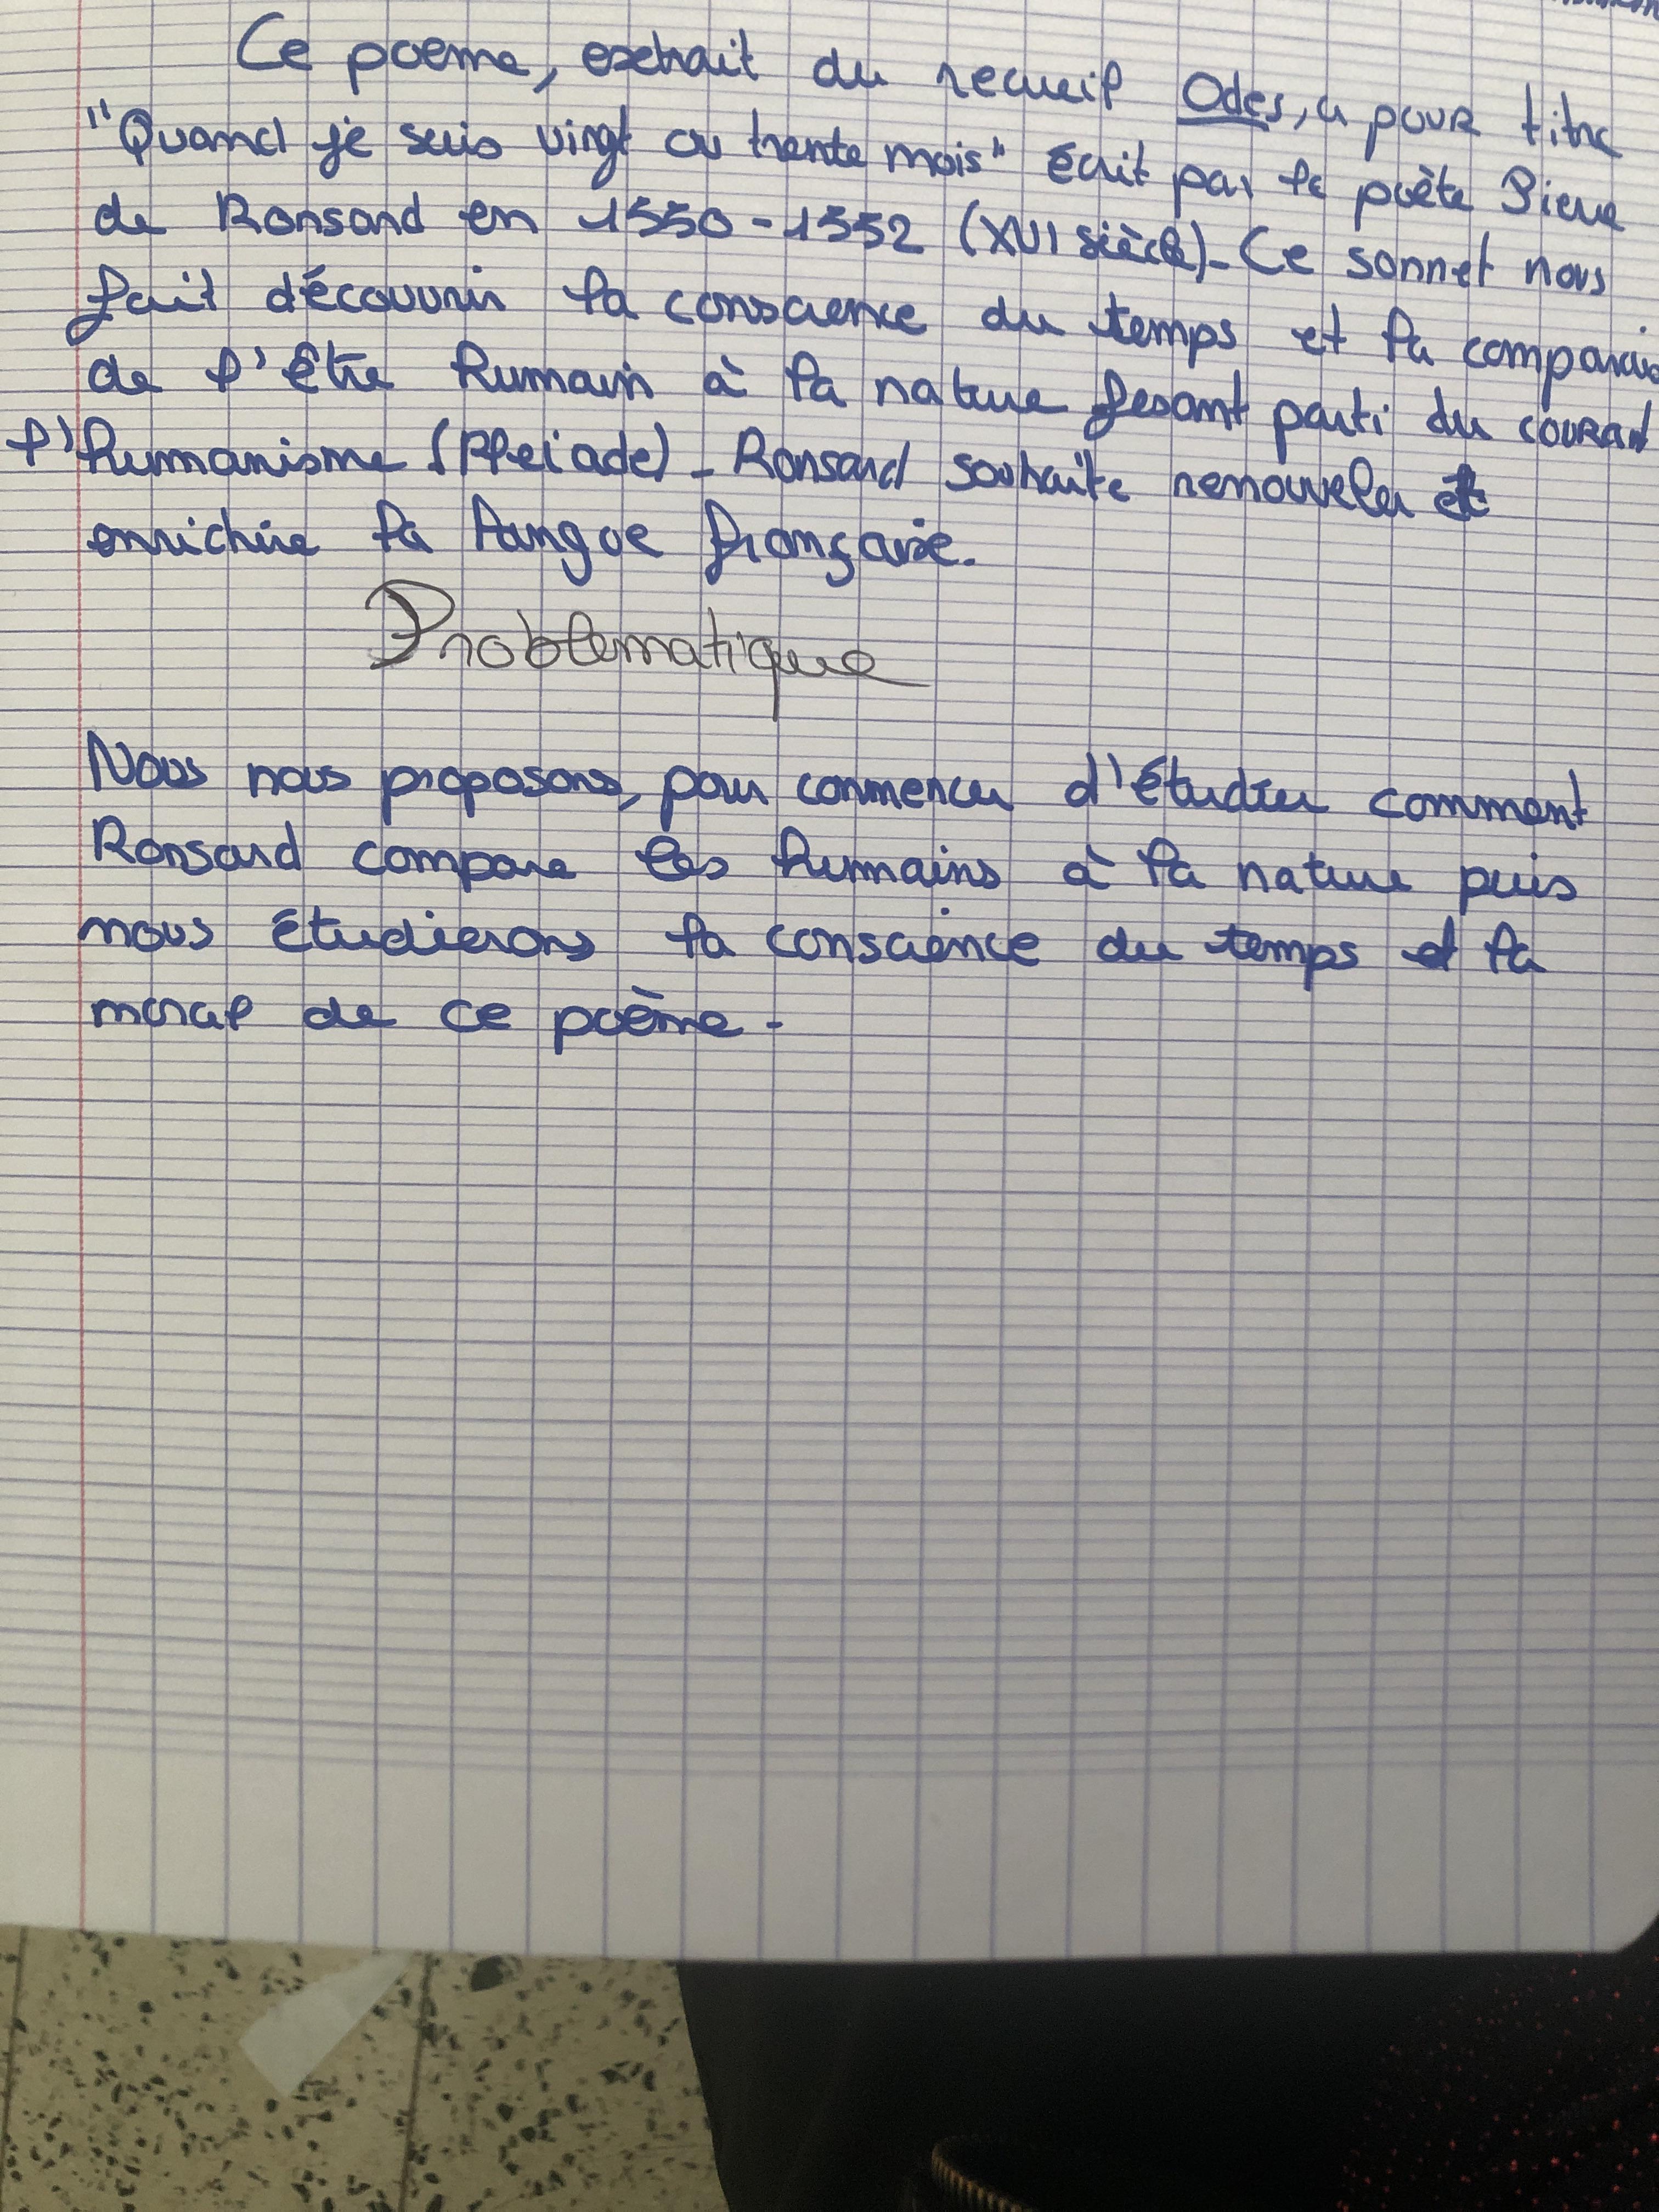 Ce poeme, extrait du recueil Odes, a pour titre
"Quand je suis vingt ou trente mois" écrit par le poète Pierre
de Ronsard en 1550-1552 (XVI siècle). Ce sonnet nous
fait découvrir la conscience du temps et la comparais
de l'être humain à la nature fesant parti du courant
l'humanisme (Pleiade). Ronsard souhaite renouveler et
enrichire la langue française.
Problematique
Nous nous proposons, pour commencer d'étudier comment
Ronsard compare les humains à la nature puis
nous étudierons la conscience du temps et la
moral de ce poème.